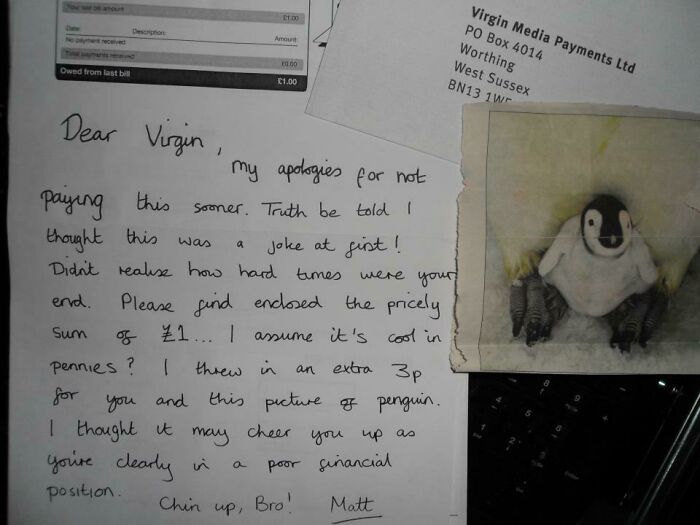 Your last bill amount £1.00
Date: Description: Amount:
No payment received
Total payments received £0.00
Owed from last bill £1.00
Virgin Media Payments Ltd
PO Box 4014
Worthing
West Sussex
BN13
Dear Virgin,
my apologies for not
paying this sooner. Truth be told I
thought this was a joke at first!
Didn't realise how hard times were your
end. Please find enclosed the pricely
sum of £1... I assume it's cool in
pennies? I threw in an extra 3p
for you and this picture of penguin.
I thought it may cheer you up as
you're clearly in a poor financial
position.
Chin up, Bro! Matt